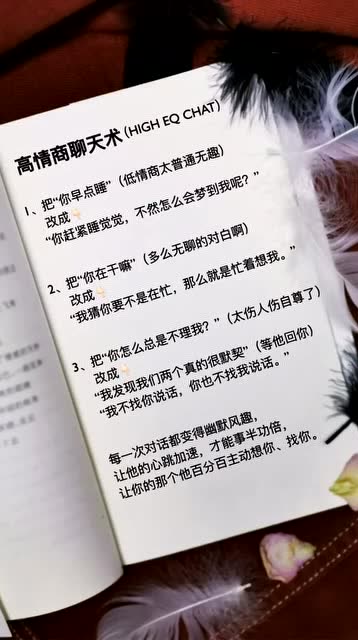 高情商聊天术(HIGH EQ CHAT)
1、把“你早点睡”(低情商太普通无趣)
改成👇🏻
“你赶紧睡觉觉，不然怎么会梦到我呢？”
2、把“你在干嘛”(多么无聊的对白啊)
改成👇🏻
“我猜你要不是在忙，那么就是忙着想我。”
3、把“你怎么总是不理我？”(太伤人伤自尊了)
改成👇🏻
“我发现我们两个真的很默契”(等他回你)
“我不找你说话，你也不找我说话。”
每一次对话都变得幽默风趣，
让他的心跳加速，才能事半功倍，
让你的那个他百分百主动想你、找你。